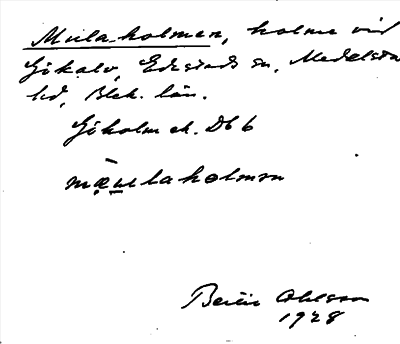 Mula-holmen, holme vid
Gökalv, Edestads sn, Medelsta
hd, Blek. län.
Göholm ek. Db 6
mæula holmen
Bertil Ohlsson
1928